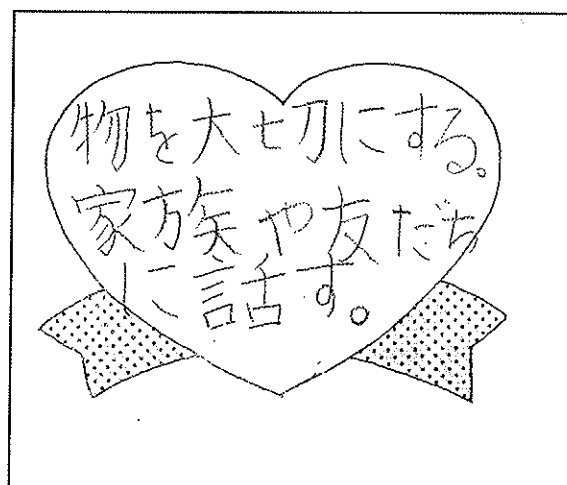 物を大切にする。
家族や友だち
に話す。